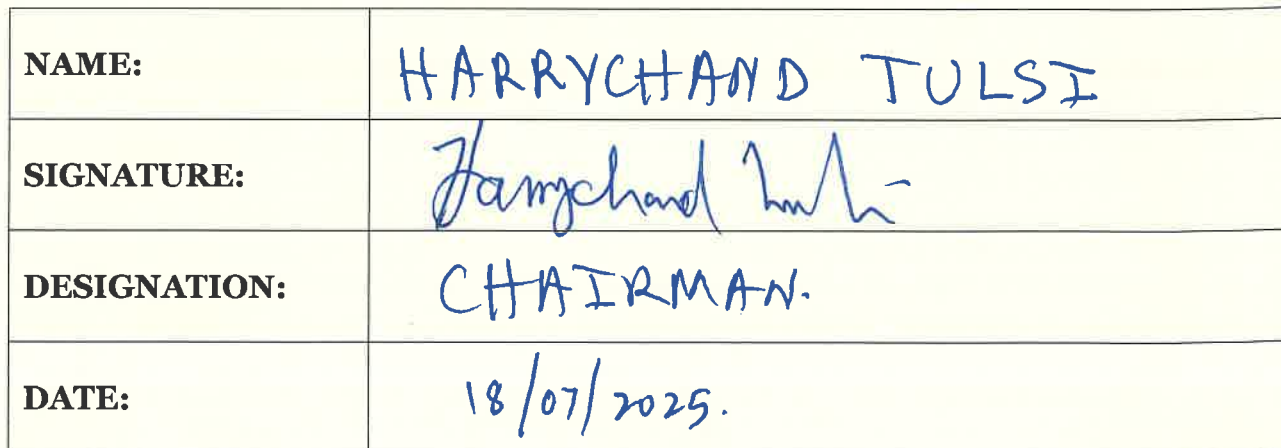 NAME: HARRYCHAND TULSI
SIGNATURE: Harrychand
DESIGNATION: CHAIRMAN.
DATE: 18/07/2025.